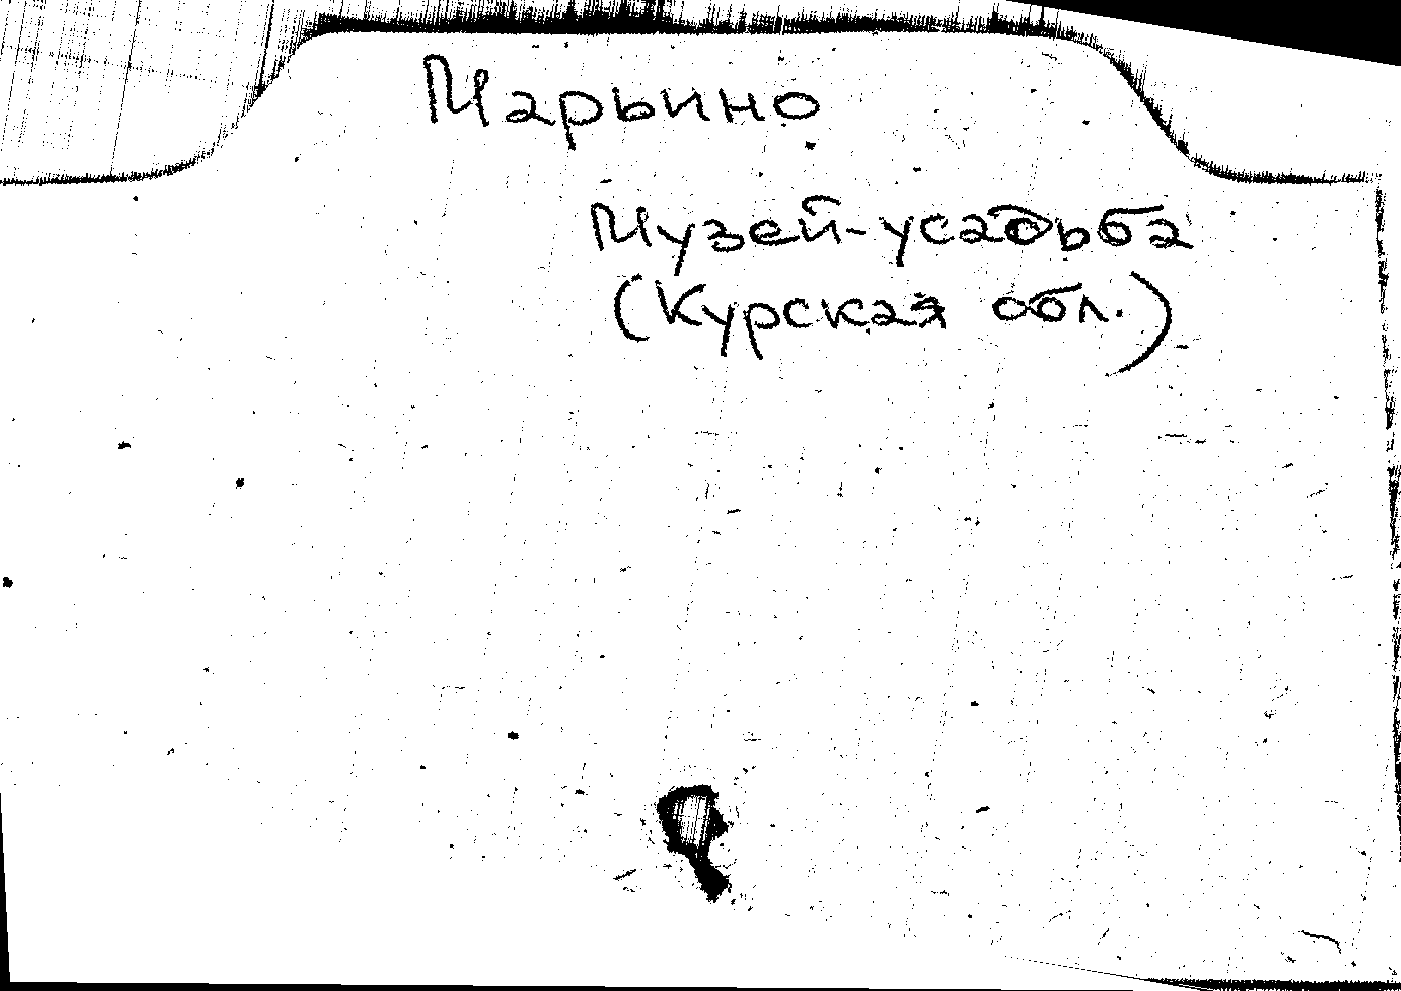 Марьино
Музей-усадьба
(Курская обл.)